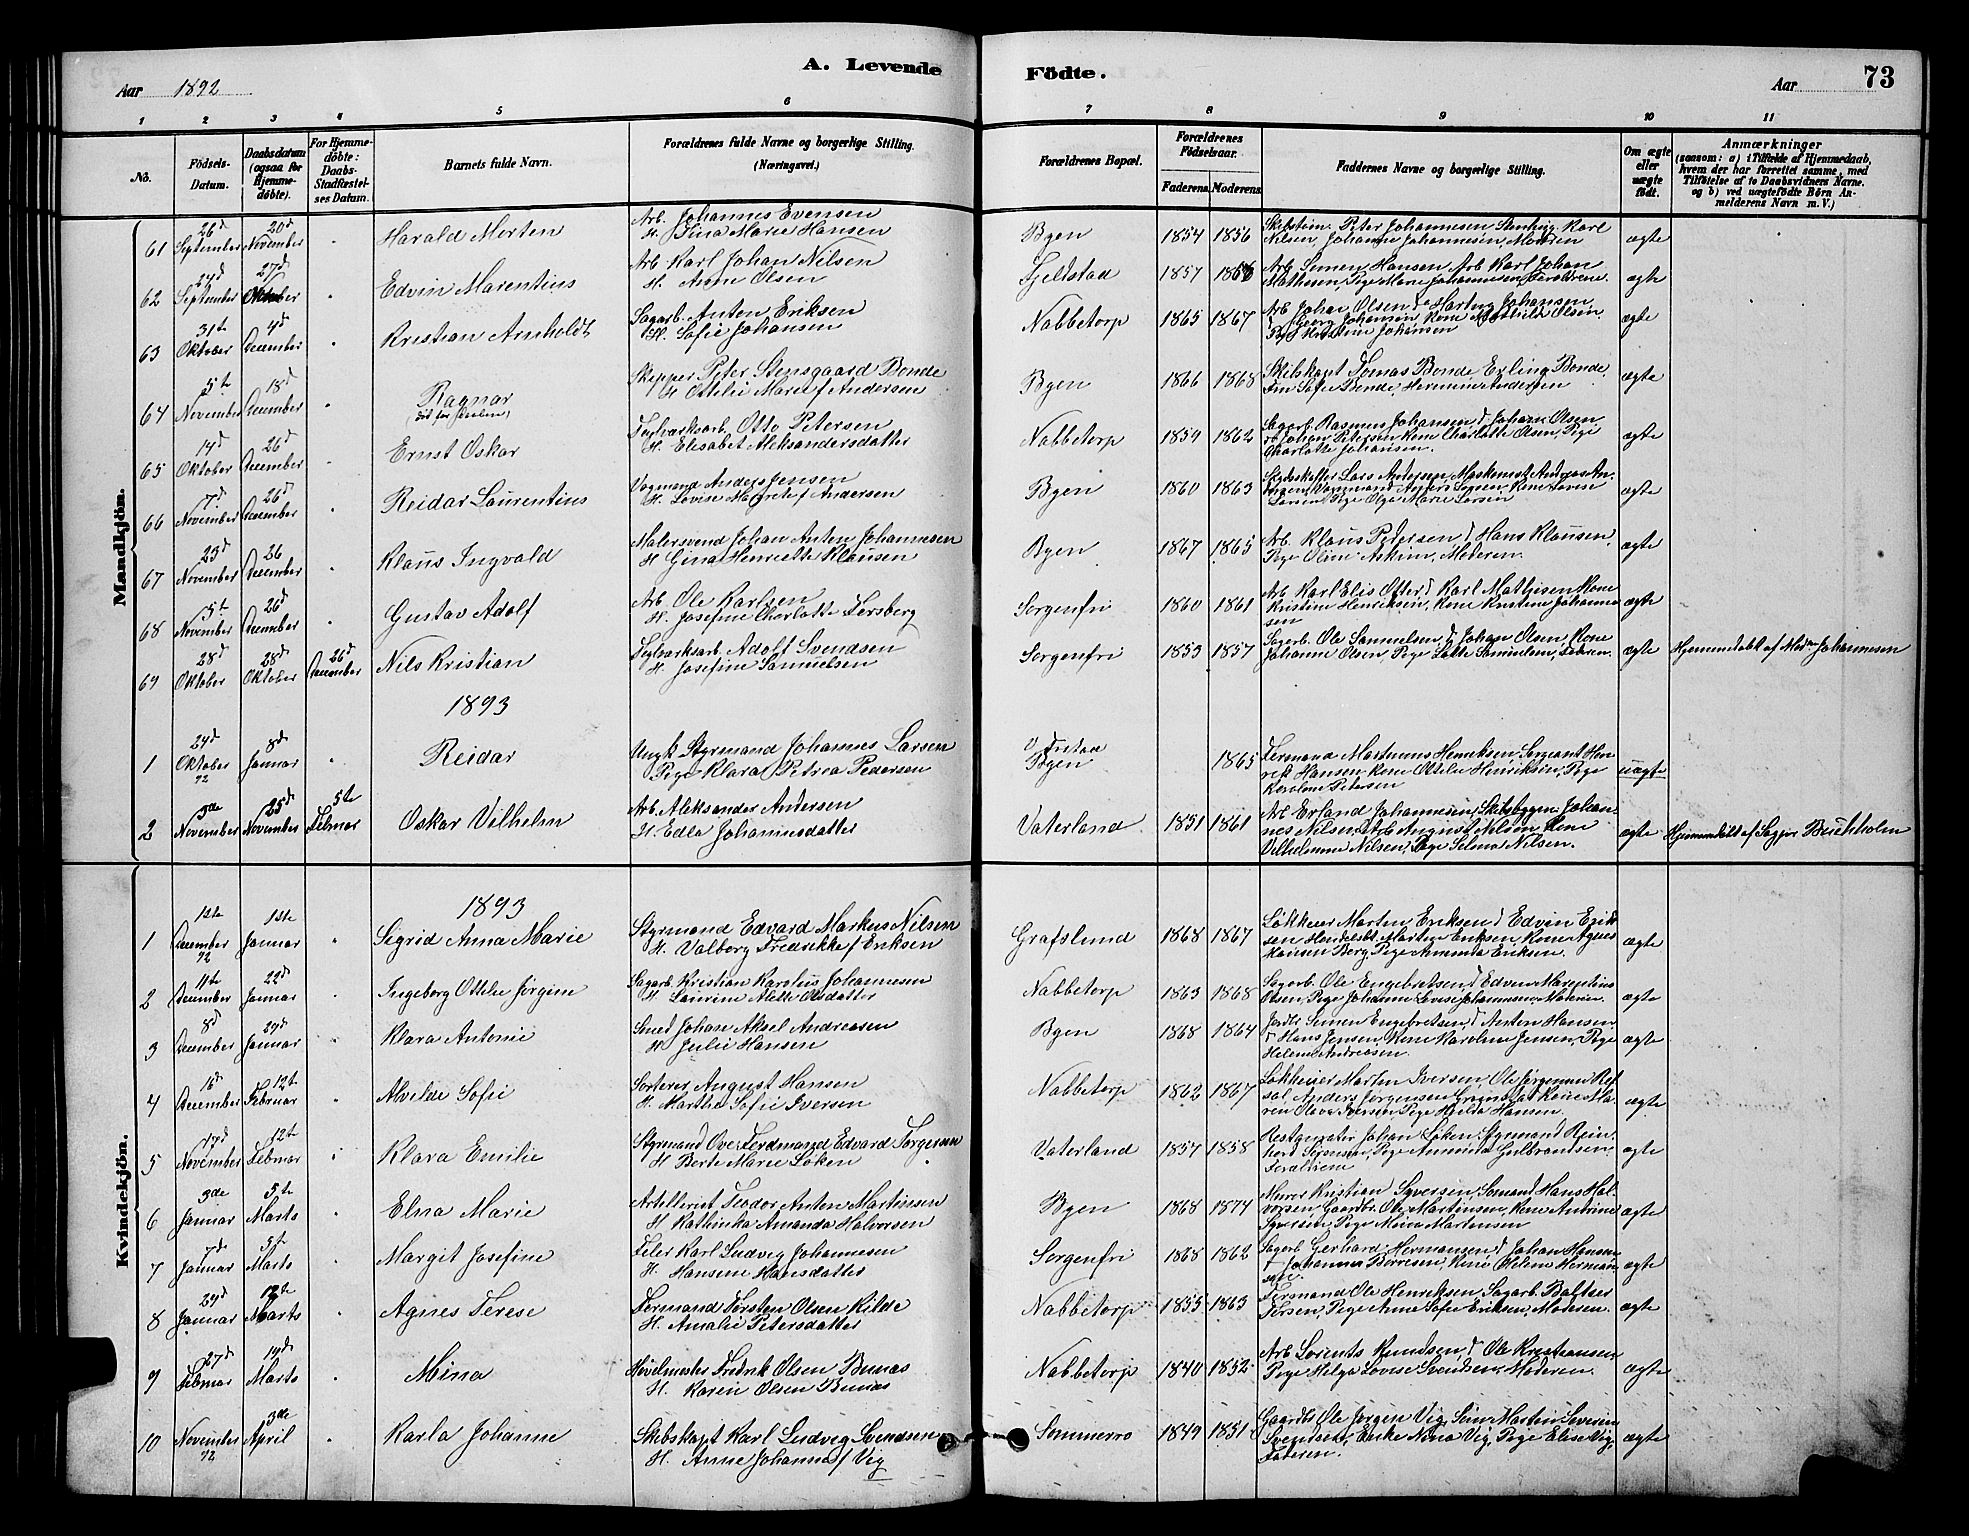 A. Levende Födte.
Aar 1892
Aar 73
1 2 3 4 5 6 7 8 9 10 11
No.
Födsels-Datum.
Daabsdatum (ogsaa for Hjemmedöbte).
For Hjemmedöbte: Daabs-Stadfæstelses Datum.
Barnets fulde Navn.
Forældrenes fulde Navne og borgerlige Stilling. (Næringsvei.)
Forældrenes Bopæl.
Forældrenes Födselsaar.
Faderens. Moderens.
Faddernes Navne og borgerlige Stilling.
Om ægte eller uægte födt.
Anmærkninger
(saasom: a) i Tilfælde af Hjemmedaab, hvem der har forrettet samme, med Tilföielse af to Daabsvidners Navne. og b) ved uægtefödte Börn Anmelderens Navn m. V.)
Mandkjön.
61 26d September 20d November Harald Morten Arb. Johannes Evensen H. Tina Marie Hansen Byen 1854 1856 Peter Johannesen Karl Nilsen, Johanne Johannesen, Moderen ægte
62 24d September 27d Edvin Marentius Arb. Karl Johan Nilsen H. Anne Olsen Fjeldstad 1857 Arb. Simen Hansen Arb Karl Johan Mathisen, Pige Marie Johannesen, Forældrene. ægte
63 31te Oktober 4d December Kristian Arnholdt Sagarb. Anton Eriksen H. Sofie Johansen Nabbetorp 1865 1867 Arb Johan Olsen, Martin Johansen, Georg Johansen Kone Mathilde Olsen, Johansen ægte
64 5te November 18d December Ragnar Skipper Peter Stensgaard Bonde H. Ottilie Marie f Andersen Byen 1866 1868 Skibskapt Tomas Bonde Erling Bonde, Fru Sofie Bonde, Hermine Andersen ægte
65 14d Oktober 26d December Ernst Oskar Teglværksarb. Otto Petersen H. Elisabet Aleksandersdatter Nabbetorp 1859 1862 Sagarb Rasmus Johansen, Johan Olsen, Johan Petersen Kone Charlotte Olsen, Pige Charlotte Johansen. ægte
66 7d November 26d December Reidar Laurentius Vogmand Anders Jensen H. Lovise Magrete f Andersen Byen 1860 1863 Lars Andersen, Maskinist Andreas Andersen, Vogmand Anders Kone Lovise Larsen, Pige Olga Marie Larsen ægte
67 23d November 26 December Klaus Ingvald Malersvend Johan Anton Johannesen H Gina Henriette Klausen Byen 1867 1865 Arb. Klaus Pedersen, Hans Klausen, Pige Oline Askim, Moderen. ægte
68 5te November 26d December Gustav Adolf Arb. Ole Karlsen H. Josefine Charlotte Forsberg Sorgenfri 1860 1861 Arb Karl Elis Otter, Karl Mathisen Kone Kristine Henriksen, Kone Kristine Johannesen ægte
69 28d Oktober 28d Oktober 26d December Nils Kristian Teglværksarb Adolf Svendsen H. Josefine Samuelsen Sorgenfri 1853 1857 Sagarb. Ole Samuelsen, Johan Olsen, Kone Johanne Olsen, Pige Lotte Samuelsen, Faderen. ægte Hjemmedøbt af Johannesen
1893
1 24d Oktober 92 8d Januar Reidar Ungk. Styrmand Johannes Larsen Pige Klara Petrea Pedersen Byen 1865 Formand Martinius Henriksen, Sergeant Henrik Hansen Kone Ottilie Henriksen, Pige Karoline Petersen uægte
2 3de November 25d November 5te Februar Oskar Vilhelm Arb. Aleksander Andersen H. Edla Johannesdatter Vaterland 1851 1861 Arb Erland Johannesen, Skibsbygger Johannes Nilsen, Arb August Nilsen, Kone Vilhelmine Nilsen, Pige Selma Nilsen. ægte Hjemmedøbt af
Kvindekjön.
1893
1 1ste December 92 1ste Januar Sigrid Anna Marie Styrmand Edvard Markus Nilsen H. Valborg Fredrikke f Eriksen Grafslund 1868 1867 Martin Eriksen, Edvin Eriksen Martin Eriksen, Kone Agnes Hansen Berg, Pige Amanda Eriksen. ægte
2 11te December 22d Januar Ingeborg Ottilie Jørgine Sagarb. Kristian Karolius Johannesen H. Laurine Mette Olsdatter Nabbetorp 1863 1868 Sagarb. Ole Engebretsen, Edvin Marentius Olsen, Pige Johanne Lovise Johannesen, Moderen. ægte
3 8d December 29d Januar Klara Antonie Smed Johan Aksel Andreasen H Julie Hansen Byen 1868 1864 Simen Engebretsen, Anton Hansen, Hans Jensen, Kone Karoline Jensen, Pige Helene Andreasen. ægte
4 16d December 12te Februar Alvilde Sofie Sorterer August Hansen H. Marthe Sofie Iversen Nabbetorp 1862 1867 Martin Iversen, Ole Jørgensen Anders Jørgensen Kone Maren Olava Iversen Pige Hilda Hansen. ægte
5 17d November 12te Februar Klara Emilie Styrmand Ove Ferdinand Edvard Torgersen H Berte Marie Løken Vaterland 1857 1858 Johan Løken, Styrmand Reinhert Pige Amanda Gulbrandsen, Forældrene ægte
6 3de Januar 5te Marts Elna Marie Artillerist Teodor Anton Martinsen H Kathinka Amanda Halvorsen Byen 1868 1874 Murer Kristian Syversen, Hans Halvorsen, Gaardbr. Ole Martinsen, Kone Antrine Syversen, Pige Mina Martinsen ægte
7 7de Januar 5te Marts Margit Josefine Filer Karl Ludvig Johannesen H. Hansine Hansdatter Sorgenfri 1868 1862 Sagarb. Gerhard Hermansen, Johan Hansen, Johannes Børresen, Kone Oleline Hermansen. ægte
8 29d Januar 12te Marts Agnes Terese Formand Torsten Olsen Kilde H. Amalie Petersdatter Nabbetorp 1855 1863 Formand Ole Henriksen, Sagarb. Baltser Torsen, Pige Anne Sofie Eriksen, Moderen. ægte
9 27d Februar 19d Marts Mina Høvelmester Fredrik Olsen Bunæs H. Karen Olsen Bunæs Nabbetorp 1840 1852 Arb Lorents Knudsen, Ole Kristiansen, Pige Helga Lovise Svendsen, Moderen. ægte
10 November 92 3de April Karla Johanne Skibskapt Karl Ludvig Svendsen H. Anne Johanne f Vig Sommerro 1849 1851 Gaardbr Ole Jørgen Vig, Martin Severin Svendsen, Enke Nina Vig, Pige Elise Vig, Faderen. ægte